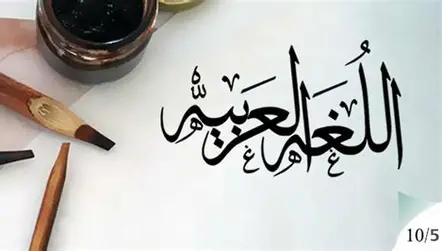 اللُغه العربيه
10/5